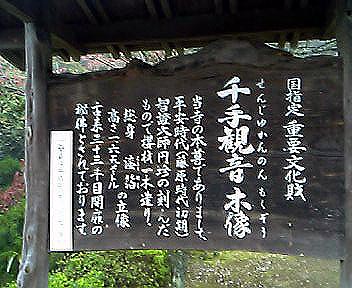 国指定 重要文化財
せんじゅかんのん もくぞう
千手観音 木像
当寺の本尊でありまして、
平安時代（藤原時代初期）
智證大師円珍の刻んだ
もので桜材一木造り、
総身 漆箔
高さ 一六八センチ の立像
三十三年目開扉の
秘仏とされております